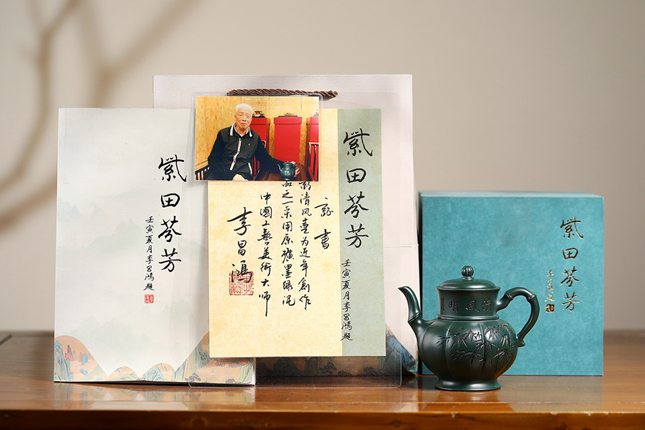 紫田芬芳
壬寅夏月李昌鸿题
紫田芬芳
壬寅夏月李昌鸿题
证书
影清风壶为近年创作
品之一采用原矿墨绿泥
中国工艺美术大师
李昌鸿
紫田芬芳